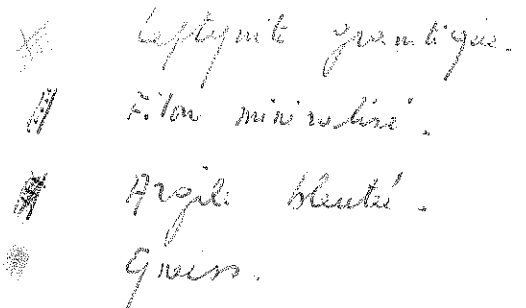 Leptynite granitique.
Filon minéralisé.
Argile bleutée.
Gneiss.